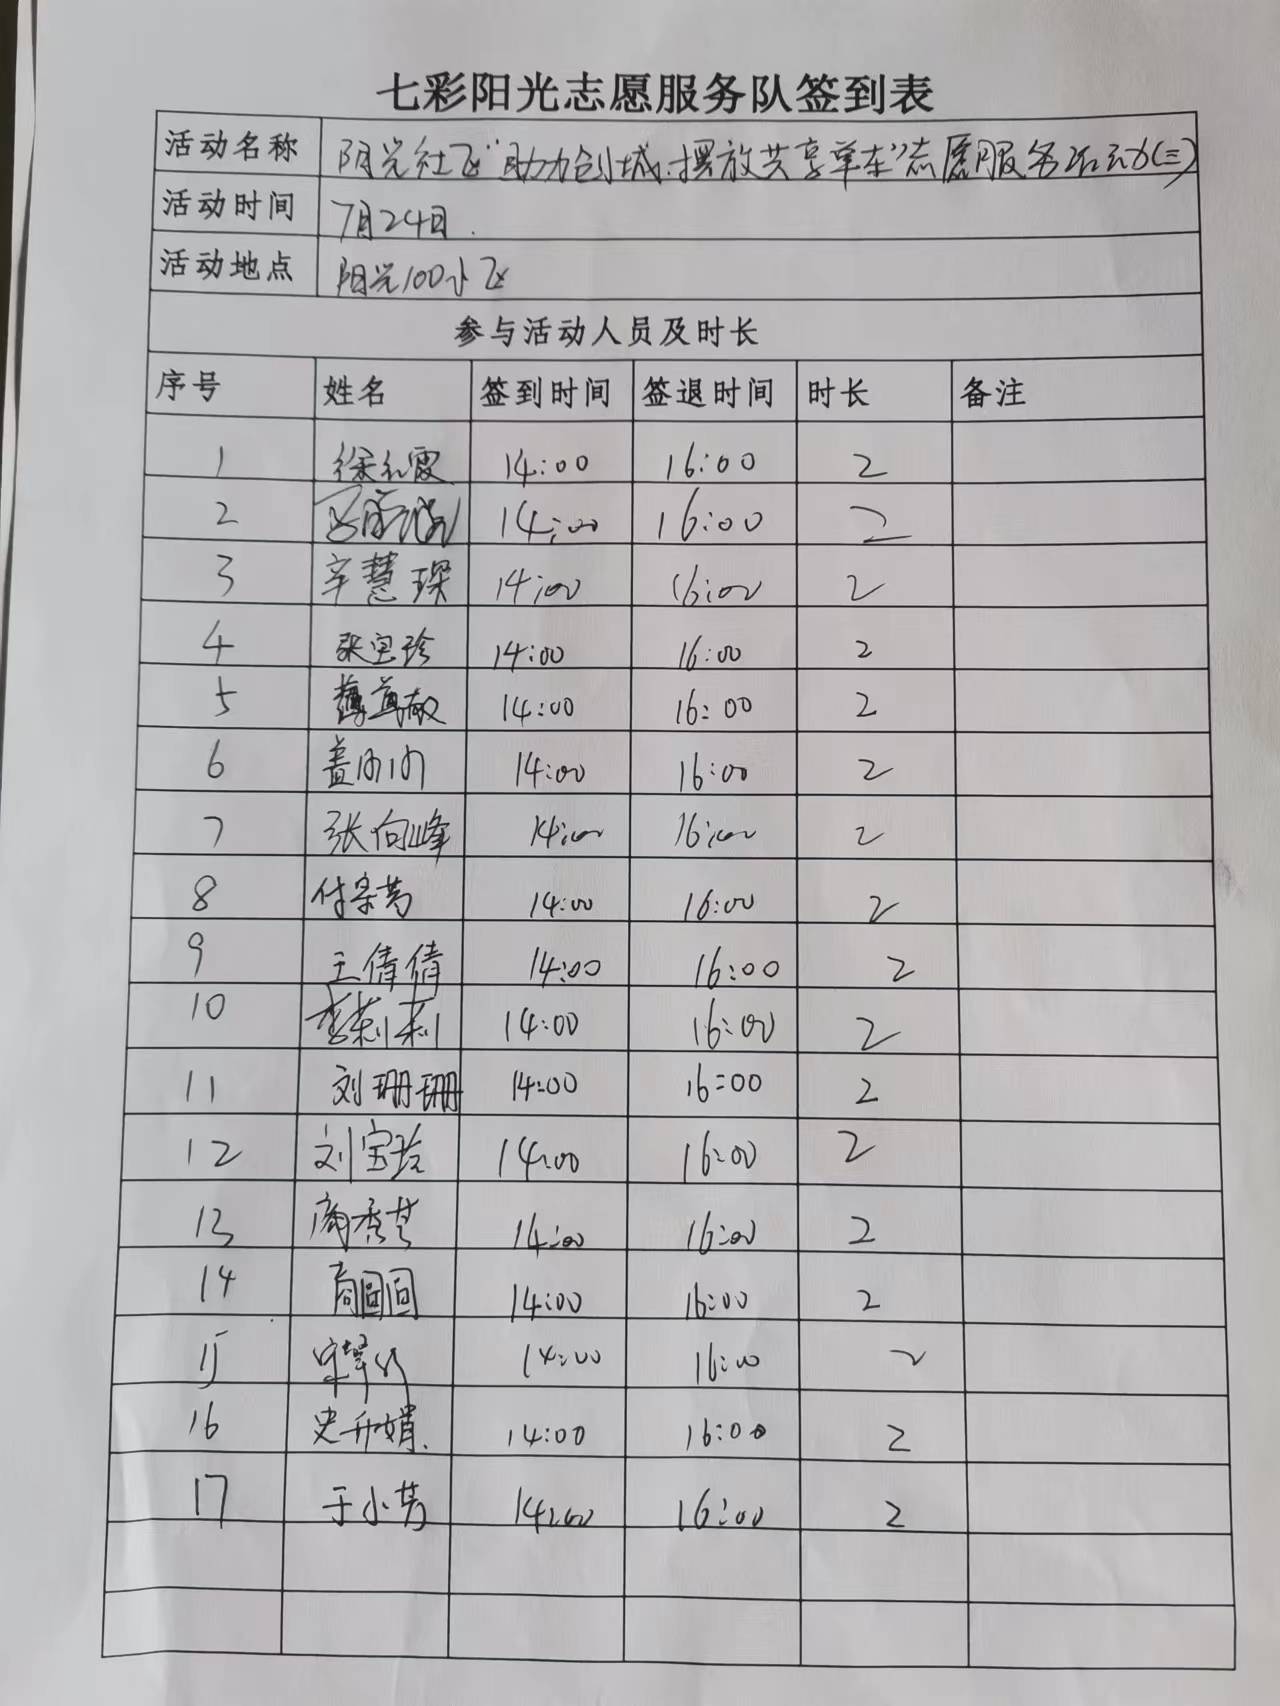 七彩阳光志愿服务队签到表
活动名称 阳光社区"助力创城.摆放共享单车"志愿服务活动(三)
活动时间 7月24日.
活动地点 阳光100小区
参与活动人员及时长
序号 姓名 签到时间 签退时间 时长 备注
1 徐红霞 14:00 16:00 2
2 14:00 16:00 2
3 辛慧琛 14:00 16:00 2
4 张宝珍 14:00 16:00 2
5 14:00 16:00 2
6 盖 14:00 16:00 2
7 张向峰 14:00 16:00 2
8 付宗芳 14:00 16:00 2
9 王倩倩 14:00 16:00 2
10 李莉莉 14:00 16:00 2
11 刘珊珊 14:00 16:00 2
12 刘宝玲 14:00 16:00 2
13 商秀芝 14:00 16:00 2
14 商圆圆 14:00 16:00 2
15 14:00 16:00 2
16 史升娟. 14:00 16:00 2
17 于小芳 14:00 16:00 2